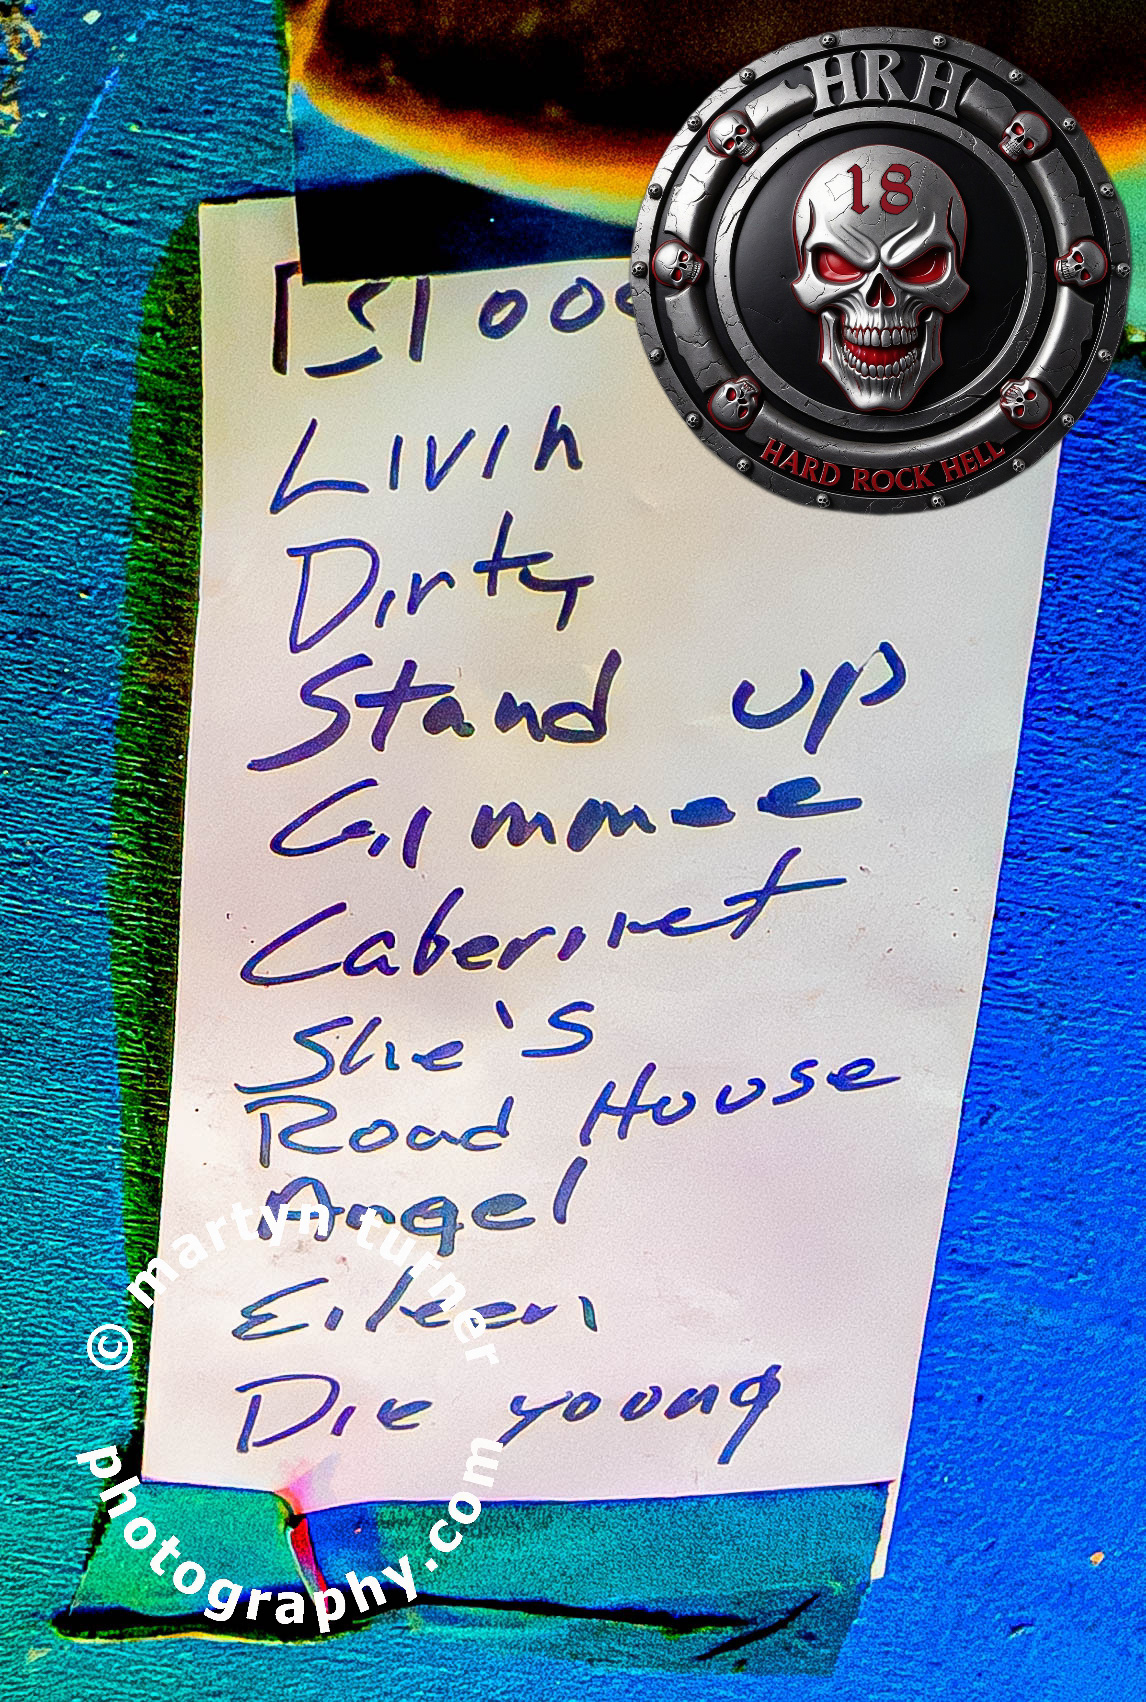 HRH
18
HARD ROCK HELL
Livin
Dirty
Stand up
Gimmee
Cabernet
She's
Road House
Angel
Eileen
Die young
© martyn turner
photography.com